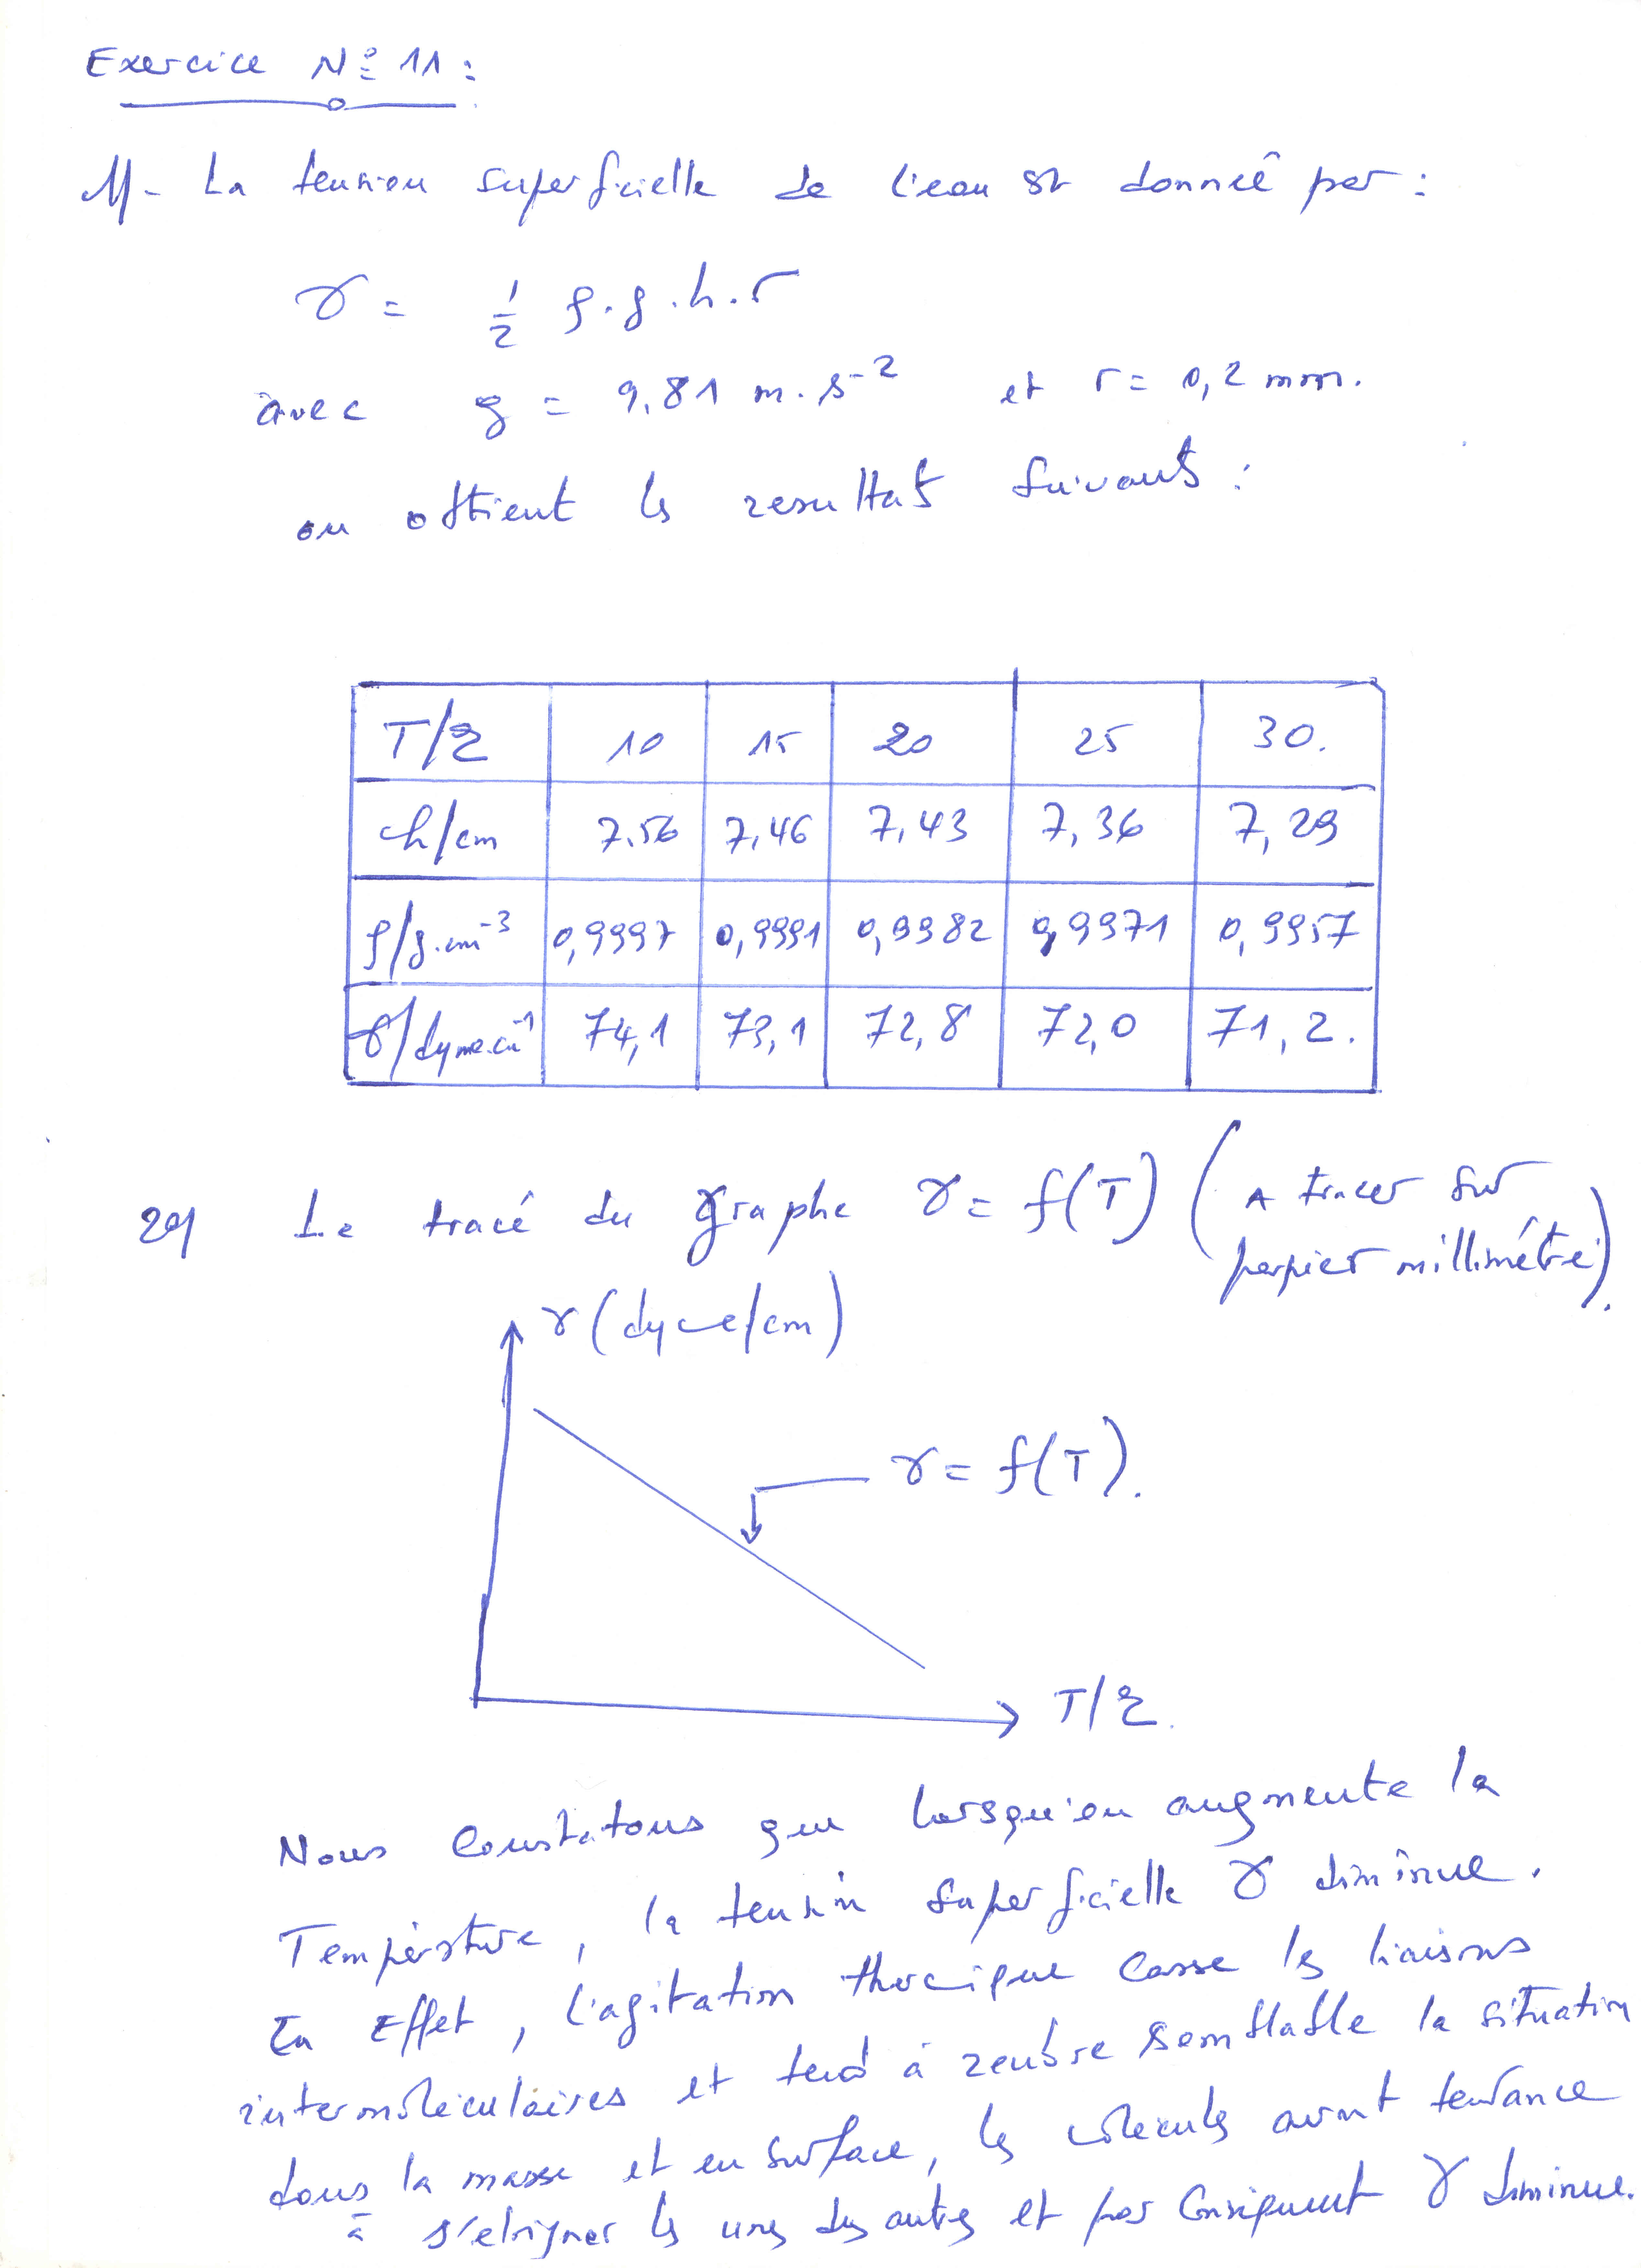 Exercice N° 11 :
1/- La tension superficielle de l'eau est donnée par :
γ = 1/2 ρ.g.h.r
avec g = 9,81 m.s⁻² et r = 0,2 mm.
on obtient les resultats suivants :
T/°C 10 15 20 25 30.
h/cm 7.56 7,46 7,43 7,36 7,29
ρ/g.cm⁻³ 0,9997 0,9991 0,9982 0,9971 0,9957
γ/dyne.cm⁻¹ 74,1 73,1 72,8 72,0 71,2.
2°/ Le tracé du graphe γ = f(T) (A tracer sur
papier millimétré).
γ (dyne/cm)
γ = f(T).
T/°C.
Nous constatons que lorsqu'on augmente la
Température, la tension superficielle γ diminue.
En Effet, l'agitation thermique casse les liaisons
intermoléculaires et tend à rendre semblable la situation
dans la masse et en surface, les molécules ayant tendance
à s'eloigner les unes des autres et par conséquent γ diminue.